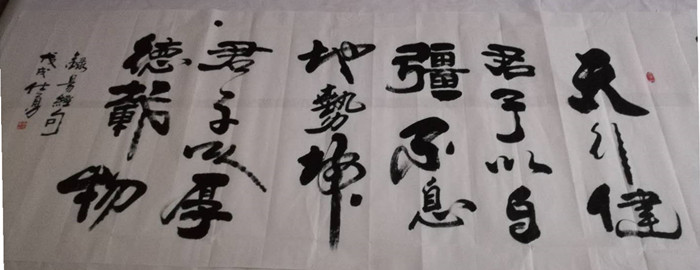 天行健
君子以自
彊不息
地勢坤
君子以厚
德載物
錄易經句
戊戌